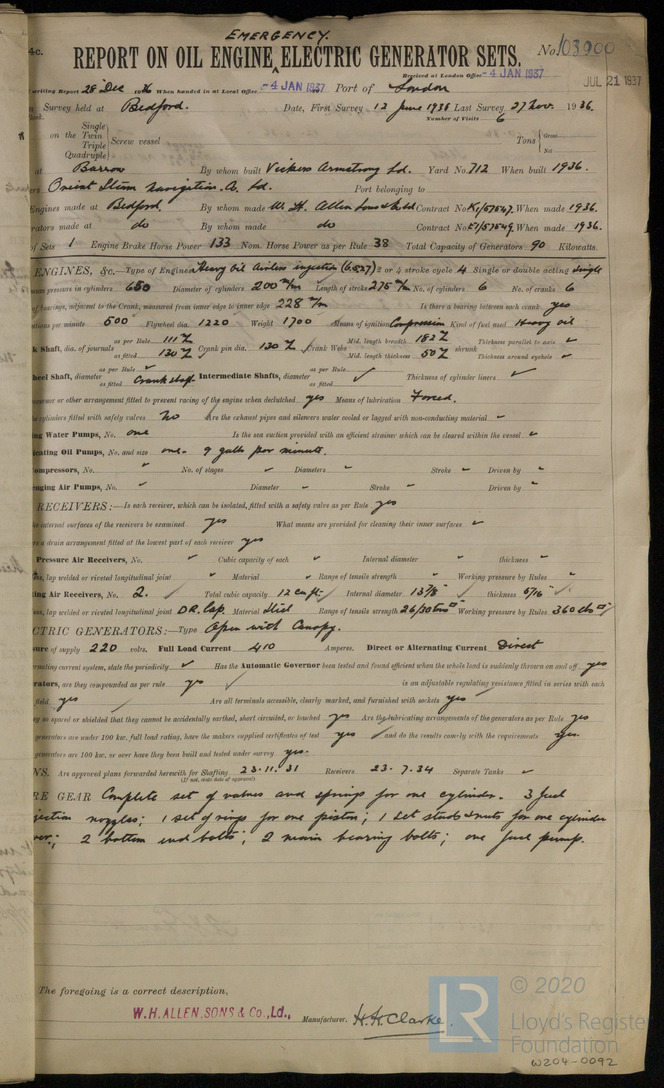 EMERGENCY.
4c.
REPORT ON OIL ENGINE ELECTRIC GENERATOR SETS.
No. 103900
Received at London Office -4 JAN 1937
JUL 21 1937
writing Report 28 Dec 1936 When handed in at Local Office -4 JAN 1937 Port of London
Survey held at Bedford. Date, First Survey 12 June 1936 Last Survey 27 Nov. 1936.
Number of Visits 6
on the Single Twin Triple Quadruple Screw vessel Tons Gross Net
at Barrow By whom built Vickers Armstrong Ld. Yard No. 712 When built 1936.
Orient Steam Navigation Co. Ld. Port belonging to
Engines made at Bedford. By whom made W. H. Allen Sons & Co Ld Contract No. K1/57547. When made 1936.
rators made at do By whom made do Contract No. E1/57549. When made 1936.
of Sets 1 Engine Brake Horse Power 133 Nom. Horse Power as per Rule 38 Total Capacity of Generators 90 Kilowatts.
ENGINES, &c.—Type of Engines Heavy Oil Airless injection 2 or 4 stroke cycle 4 Single or double acting single
mum pressure in cylinders 650 Diameter of cylinders 200 m/m Length of stroke 275 m/m No. of cylinders 6 No. of cranks 6
of bearings, adjacent to the Crank, measured from inner edge to inner edge 228 m/m Is there a bearing between each crank yes
utions per minute 500 Flywheel dia. 1220 Weight 1700 Means of ignition Compression Kind of fuel used Heavy oil
k Shaft, dia. of journals as per Rule 111 as fitted 130 Crank pin dia. 130 Crank Webs Mid. length breadth 182 Mid. length thickness 50 shrunk Thickness parallel to axis Thickness around eyehole
heel Shaft, diameter as per Rule as fitted Crankshaft Intermediate Shafts, diameter as per Rule as fitted Thickness of cylinder liners
overnor or other arrangement fitted to prevent racing of the engine when declutched yes Means of lubrication Forced.
he cylinders fitted with safety valves No Are the exhaust pipes and silencers water cooled or lagged with non-conducting material
ing Water Pumps, No. one Is the sea suction provided with an efficient strainer which can be cleared within the vessel
icating Oil Pumps, No. and size one. 9 galls per minute.
ompressors, No. No. of stages Diameters Stroke Driven by
enging Air Pumps, No. Diameter Stroke Driven by
RECEIVERS:—Is each receiver, which can be isolated, fitted with a safety valve as per Rule yes
he internal surfaces of the receivers be examined yes What means are provided for cleaning their inner surfaces
re a drain arrangement fitted at the lowest part of each receiver yes
Pressure Air Receivers, No. Cubic capacity of each Internal diameter thickness
less, lap welded or riveted longitudinal joint Material Range of tensile strength Working pressure by Rules
ing Air Receivers, No. 2. Total cubic capacity 12 cu ft. Internal diameter 13 7/8 thickness 5/16
less, lap welded or riveted longitudinal joint D.R. Lap. Material Steel Range of tensile strength 26/30 tons □" Working pressure by Rules 360 lbs □"
CTRIC GENERATORS:—Type Open with Canopy.
sure of supply 220 volts. Full Load Current 410 Amperes. Direct or Alternating Current Direct
ernating current system, state the periodicity Has the Automatic Governor been tested and found efficient when the whole load is suddenly thrown on and off yes
rators, are they compounded as per rule yes is an adjustable regulating resistance fitted in series with each
field yes Are all terminals accessible, clearly marked, and furnished with sockets yes
ey so spaced or shielded that they cannot be accidentally earthed, short circuited, or touched yes Are the lubricating arrangements of the generators as per Rule yes
generators are under 100 kw. full load rating, have the makers supplied certificates of test yes and do the results comply with the requirements yes.
generators are 100 kw. or over have they been built and tested under survey yes.
NS. Are approved plans forwarded herewith for Shafting 23.11.31 Receivers 23.7.34 Separate Tanks
(If not, state date of approval)
RE GEAR Complete set of valves and springs for one cylinder. 3 fuel
jection nozzles; 1 set of rings for one piston; 1 set studs & nuts for one cylinder
cover; 2 bottom end bolts; 2 main bearing bolts; one fuel pump.
The foregoing is a correct description,
W.H. ALLEN, SONS & Co., Ld., Manufacturer. H. H. Clarke.
LR
© 2020
Lloyd's Register
Foundation
W204-0092